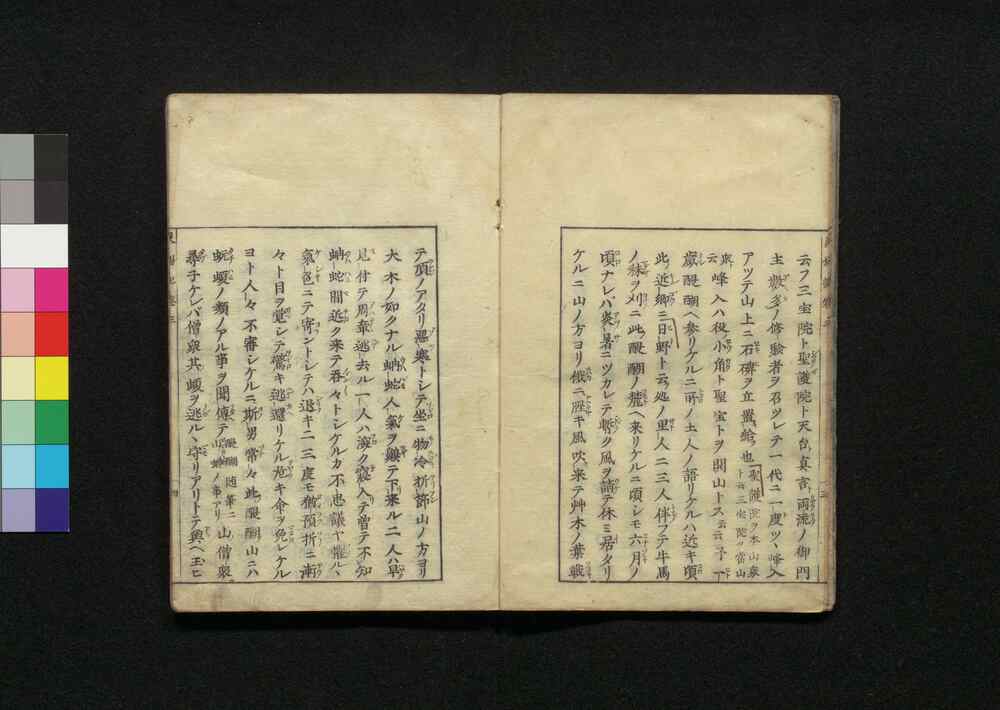 云フ三宝院ト聖護院ト天台真言両流ノ御門
主数多ノ修験者ヲ召ツレテ一代ニ一度ツヽ峰入
アツテ山上ニ石碑ヲ立置給也聖護院ヲ本山衆
ト云三宝院ヲ当山
衆峰入ハ役小角ト聖宝トヲ開山トス云云予一
歳醍醐ヘ参リケルニ所ノ土人ノ語リケルハ近キ頃
此近郷ニ日野ト云処ノ里人二三人伴フテ牛馬
ノ秣ヲ刈ニ此醍醐ノ麓ヘ来リケルニ頃シモ六月ノ
頃ナレバ炎暑ニツカレテ暫ク風ヲ請テ休ミ居タリ
ケルニ山ノ方ヨリ俄ニ腥キ風吹来テ艸木ノ葉戦
テ頂ノアタリ悪寒トシテ坐ニ物冷折節山ノ方ヨリ
大木ノ如クナル蚺蛇人氣ヲ嗅テ下来ル二人ハ早
見付テ周章逃去ル一人ハ深ク寝入テ曽テ不知
蚺蛇間近ク来テ呑々トシケルカ不思議ヤ懼ルヽ
氣色ニテ寄ントシテハ退キ二三度モ猶預折ニ
々ト目ヲ覚シテ驚キ逃還リケル危キ命ヲ免レケル
ヨト人々不審シケルニ斯男常々此醍醐山ニハ
蚖蝮ノ類ノアル事ヲ聞傳テ醍醐随筆ニ
山蛤ノ事アリ山僧衆
尋子ケレバ僧衆其蝮ヲ逃ルヽ守リアリトテ與ヘ玉ヒ